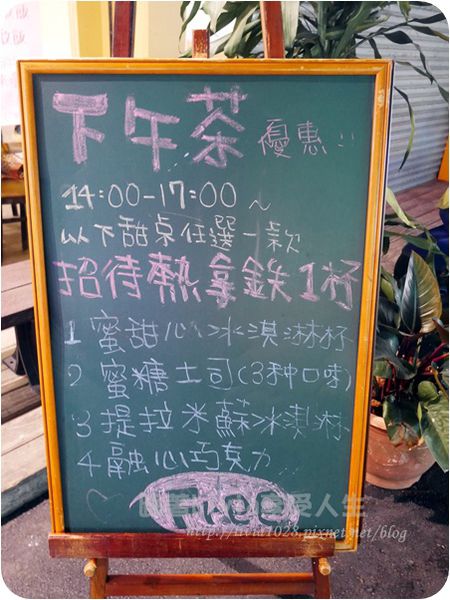 下午茶 優惠!!
14:00-17:00~
以下甜桌任選一款
招待熱拿鐵1杯
1 蜜甜心冰淇淋杯
2 蜜糖土司(3种口味)
3 提拉米蘇冰淇淋杯
4 融心巧克力...
享受人生
http://livia1028.pixnet.net/blog